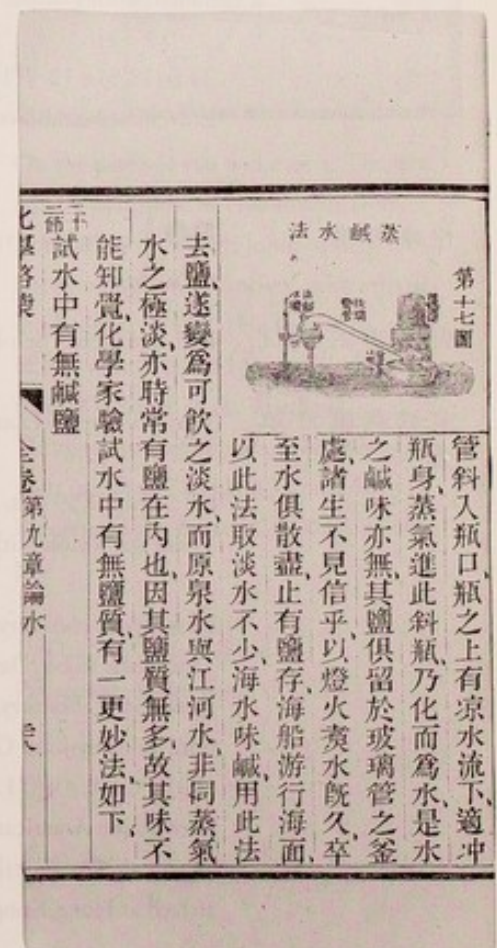 第十七圖
蒸鹹水法
管斜入瓶口、瓶之上有凉水流下、適冲
瓶身、蒸氣進此斜瓶、乃化而爲水、是水
之鹹味亦無、其鹽俱留於玻璃管之釜
處、諸生不見信乎、以燈火煑水旣久、卒
至水俱散盡、止有鹽存、海船游行海面、
以此法取淡水不少、海水味鹹、用此法
去鹽、遂變爲可飲之淡水、而原泉水與江河水、非同蒸氣
水之極淡、亦時常有鹽在內也、因其鹽質無多、故其味不
能知覺、化學家驗試水中有無鹽質、有一更妙法如下、
試水中有無鹹鹽
全卷 第九章論水